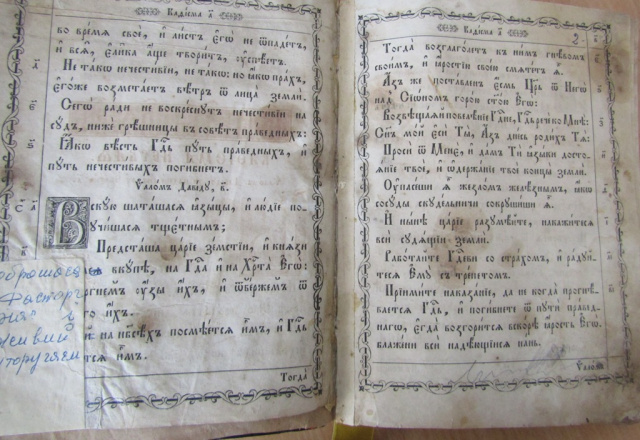 Каѳісма
во время свое, и листъ єгѡ не ѿпадетъ,
и всѧ, єлика аще творитъ, ѹспѣетъ.
Не такѡ нечестивїи, не такѡ: но ꙗкѡ прахъ,
єгоже возметаетъ вѣтръ ѿ лица земли.
Сегѡ ради не воскреснутъ нечестивїи на
судъ, ниже грѣшницы въ совѣтъ праведныхъ:
Ꙗкѡ вѣсть Гдь путь праведныхъ, и
путь нечестивыхъ погибнетъ.
Ѱаломъ Давїду, в҃.
Вскую шаташасѧ ꙗзыцы, и людїе по-
учишасѧ тщетнымъ;
Предсташа царїе земстїи, и кнѧзи
вкупѣ, на Гда и на Хрта Єгѡ:
узы ихъ, и ѿвержемъ ѿ
го ихъ.
й на нбсѣхъ посмѣетсѧ имъ, и Гдь
тсѧ имъ.
Тогда
Каѳісма
2
Тогда возглаголетъ къ нимъ гнѣвомъ
своимъ, и ꙗростїю своею смѧтетъ ѧ.
Азъ же поставленъ єсмь Црь ѿ Негѡ
над Сїѡномъ горою стою Єгѡ:
Возвѣщаѧй повелѣнїе Гдне, Гдь рече ко Мнѣ:
Снъ мой єси Ты, Азъ днесь родихъ Тѧ:
Проси ѿ Мене, и дамъ Ти ꙗзыки досто-
ѧнїе твое, и ѡдержанїе твое концы земли.
Упасеши ѧ жезломъ желѣзнымъ, ꙗкѡ
сосуды скудельничи сокрушиши ѧ.
И нынѣ царїе разумѣйте, накажитесѧ
вси судѧщїи земли.
Работайте Гдеви со страхомъ, и радуй-
тесѧ Ему съ трепетомъ.
Прїимите наказанїе, да не когда прогнѣ-
ваетсѧ Гдь, и погибнете ѿ пути правед-
нагѡ, єгда возгоритсѧ вскорѣ ꙗрость Єгѡ.
блажени вси надѣющїисѧ нань.
Ѱаломъ